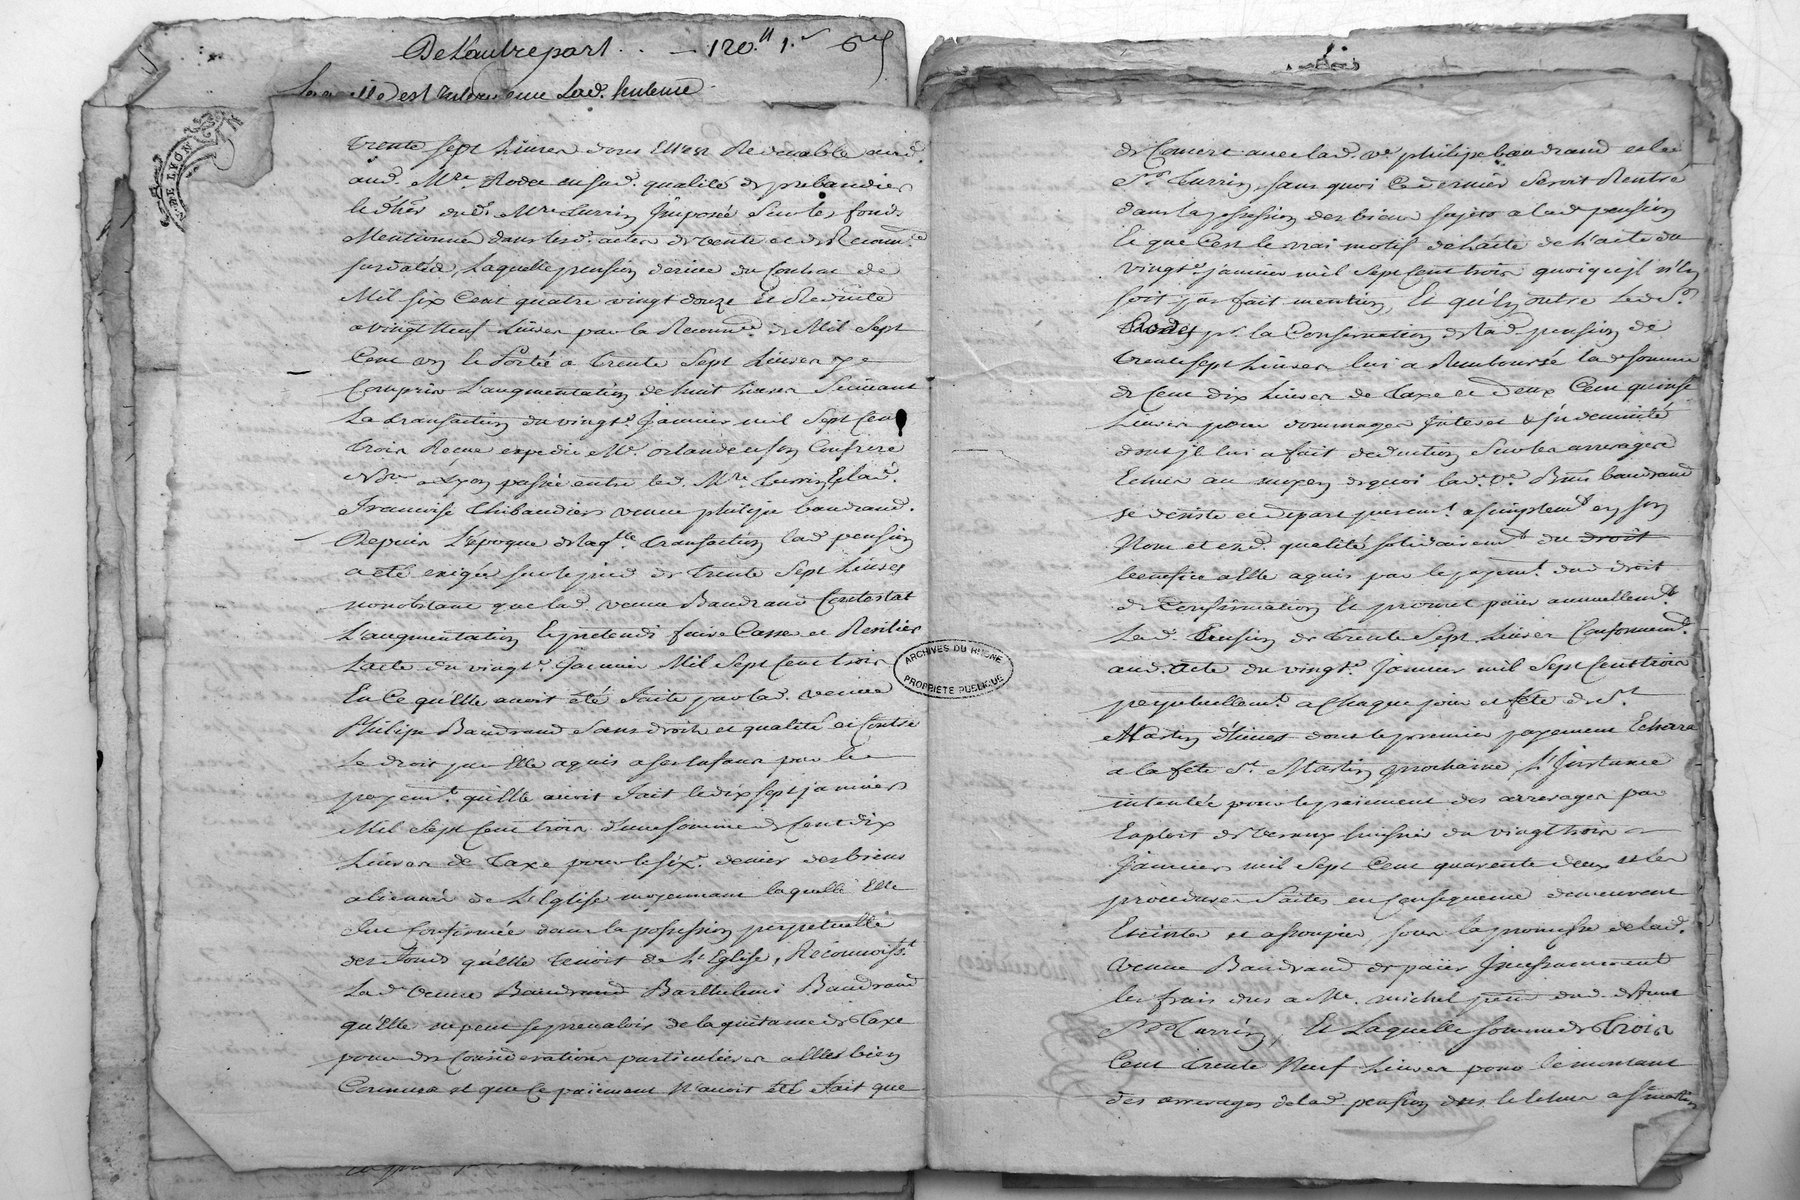 De l'autre part . . — 120.tt 1.s 6
est lad. sentence
trente sept Livres dont Elle est Redevable aud.
aud. Mre Rodes en sad. qualité de prebandier
Mre Turrin Imposée Sur les fonds
Mentionnés dans lesd. actes de vente et de Reconn.ce
sus datés, Laquelle pension derive du Contrat de
Mil six Cent quatre vingt douze Et Reduite
a vingt Neuf Livres par la Reconn.ce de Mil Sept
Cent un Et Portée a trente Sept Livres y
Compris L'augmentation de huit Livres Suivant
La transaction du vingt.e Janvier mil Sept Cent
trois Reçue expediée Mr. son Confrere
No.re a Lyon passée entre led. Mre. Turrin Et lad.
Francoise Thibaudier veuve philipe baudrand.
Depuis L'Epoque de laq.lle transaction lad. pension
a eté exigée sur le pied de trente Sept Livres
nonobstant que lad. veuve Baudrand Contestat
L'augmentation Et pretendi faire Casser et Resilier
L'acte du vingt.e Janvier Mil Sept Cent trois
En Ce qu'Elle avoit eté faite par lad. veuve
Philipe Baudrand Sans droit et qualité et Contre
Le droit par Elle aquis a ses Enfans par le
payem.t qu'Elle avoit fait le dix sept janvier
Mil Sept Cent trois d'une somme de Cent dix
Livres de taxe pour le six.e denier des biens
alienés de L'Eglise moyennant laquelle Elle
fut Confirmée dans la possession perpetuelle
des fonds qu'Elle tenoit de L'Eglise, Reconnoiss.t
Lad. veuve Baudrand Barthelemi Baudrand
qu'Elle ne peut se prevaloir de la quitance de taxe
pour des Considerations particulieres a Elle bien
Connues et que Ce paiement N'avoit eté fait que
de Concert avec lad. ve. philipe baudrand et led.
Sr. Turrin, sans quoi Ce dernier Seroit Rentré
dans la possession des biens sujets a lad. pension
Et que C'est le vrai motif de L'acte de L'acte du
vingt.e janvier mil Sept Cent trois quoiqu'il n'En
soit pas fait mention, Et qu'En outre Led. Sr.
Rodes pr. la Conservation de lad. pension de
trente sept Livres lui a Remboursé lad. somme
de Cent dix Livres de taxe et deux Cent quinse
Livres pour dommages Interet & Indemnité
dont il lui a fait deduction Sur les arrerages
Echus au moyen de quoi lad. ve. baudrand
se desiste et depart purem.t & simplem.t En son
Nom et end. qualité solidairem.t du droit
benefice a Elle aquis par le payem.t dud. droit
de Confirmation Et promet païer annuellem.t
Lad. Pension de trente Sept Livres Conformem.t
aud. acte du vingt.e janvier mil Sept Cent trois
perpetuellem.t a Chaque jour et fete de St.
Martin d'hiver dont le premier payement Echerra
a la fete St. Martin prochaine, L'Instance
intentée pour le païement des arrerages par
Exploit de huissier du vingt trois
Janvier mil Sept Cent quarente deux et les
procedures Faites en Consequence demeurent
Eteintes et assoupies, sous la promesse de lad.
veuve Baudrand de païer Incessamment
les frais dus a Me. michel dud. defunt
Sr. Turrin, Et Laquelle somme de trois
Cent trente Neuf Livres pour le montant
des arrerages de lad. pension dus Et Echus a St. martin
ARCHIVES DU RHONE
PROPRIÉTÉ PUBLIQUE
DE LYON